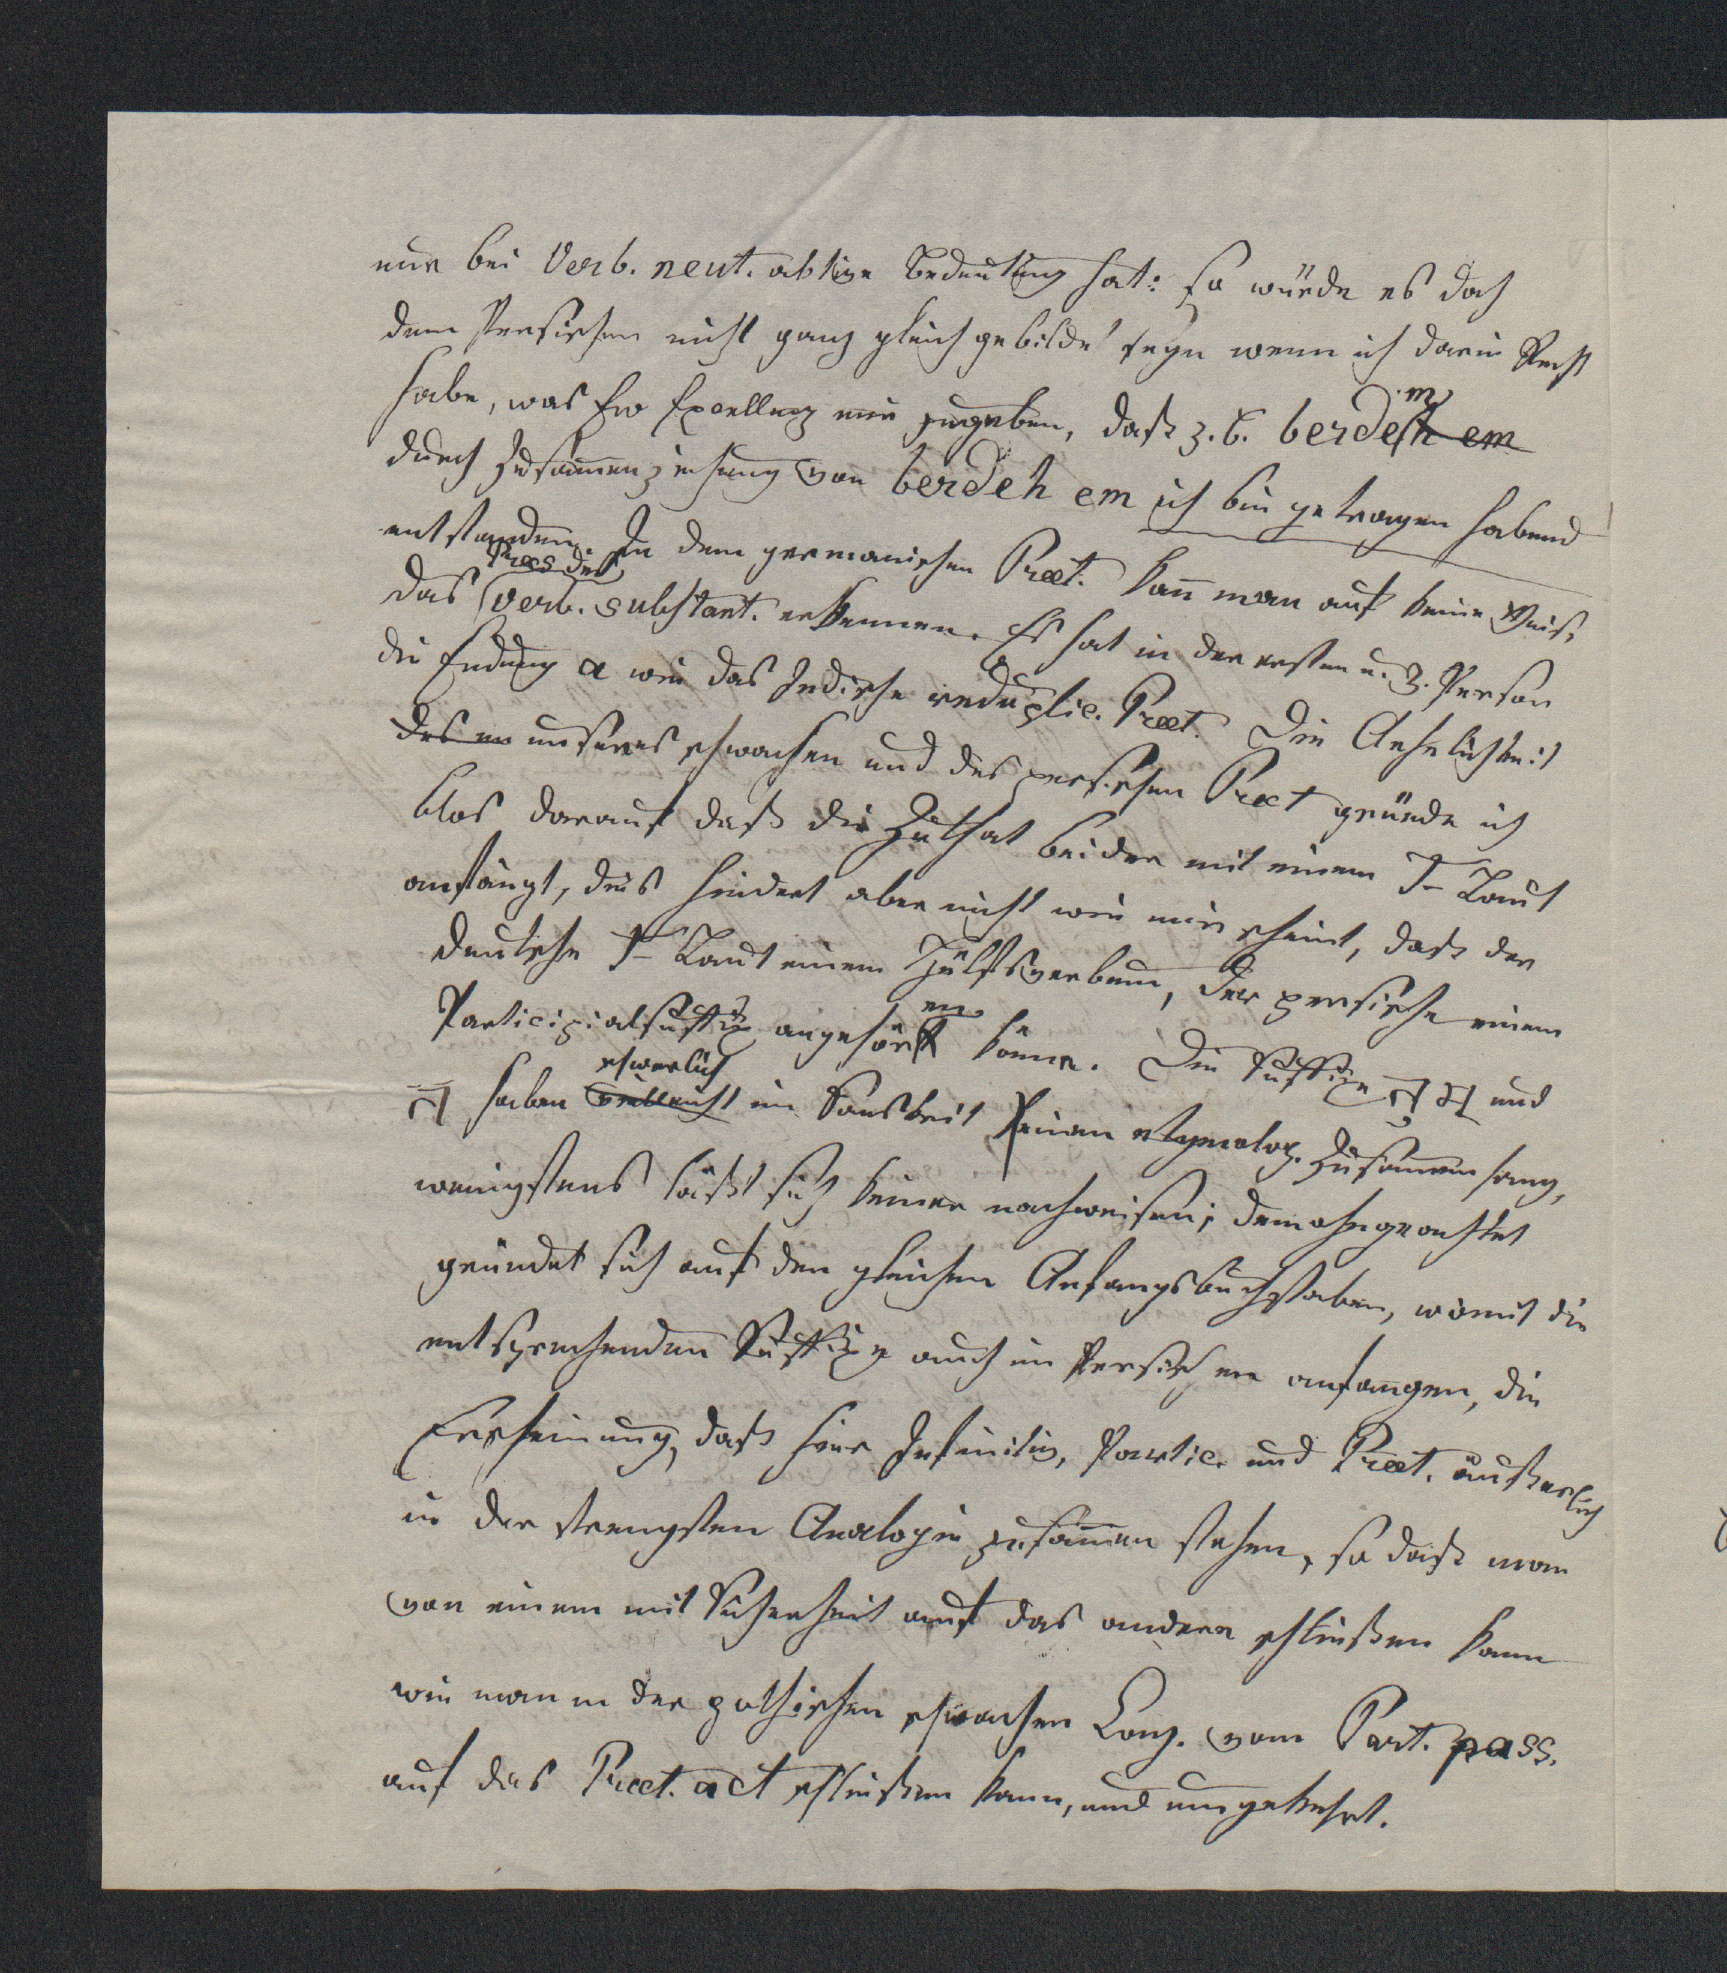 nur bei Verb. neut. aktive Bedeutung hat: so würde es doch
dem Persischen nicht ganz gleich gebildet seyn wenn ich darin Recht
habe, was Ew Excellenz mir zugeben, daß z. B. berdem
durch Zusammenziehung von berdeh em ich bin getragen habend
entstanden. In dem germanischen Praet. kann man auf keine Weise
das Praes des Verb. substant. erkennen. Es hat in der ersten u. 3. Person
die Endung a wie das Indische reduplic. Praet. Die Aehnlichkeit
des unseres schwachen und des persischen Praet gründe ich
blos darauf daß die Zuthat beider mit einem T-Laut
anfängt, dies hindert aber nicht wie mir scheint, daß der
deutsche T-Laut einem Hülfsverbum, der persische einem
Participialsuffix angehören könne. Die Suffixe तुम् und
त haben schwerlich im Sanskrit einen etymolog. Zusammenhang,
wenigstens läßt sich keiner nachweisen; demohngeachtet
gründet sich auf den gleichen Anfangsbuchstaben, womit die
entsprechenden Suffixe auch im Persischen anfangen, die
Erscheinung, daß hier Infinitiv, Partic. und Praet. äußerlich
in der strengsten Analogie zusammen stehen, so daß man
von einem mit Sicherheit auf das andere schließen kann
wie man in der gothischen schwachen Conj. vom Part. pass.
auf das Praet. act schließen kann, und umgekehrt.